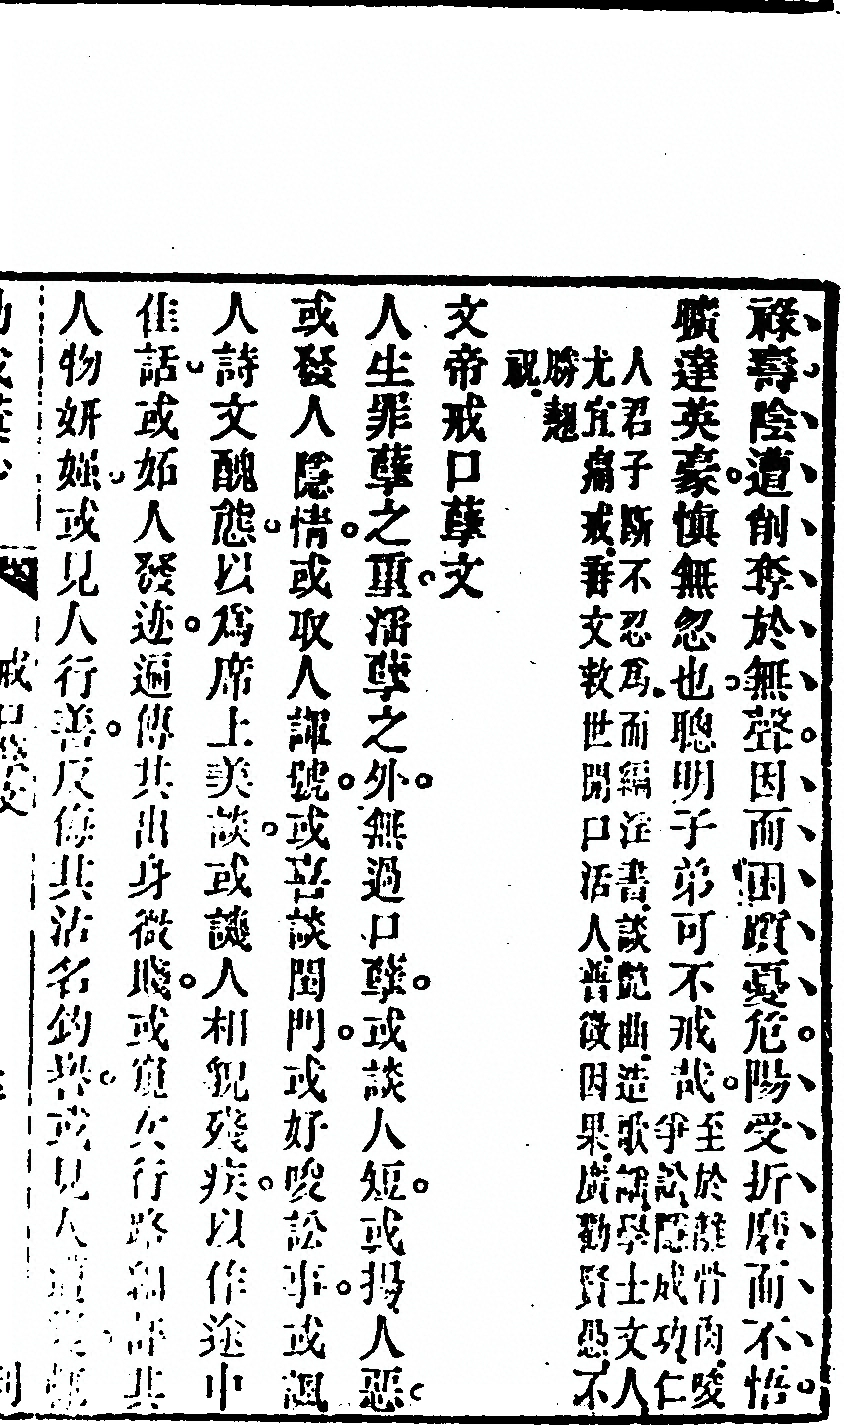 祿壽陰遭削奪於無聲因而困躓憂危陽受折磨而不悟
曠達英豪愼無忽也聰明子弟可不戒哉至於離骨肉唆
爭訟隱成功仁
人君子斷不忍爲而編淫書談艷曲造歌謠學士文人
尤宜痛戒善文救世開口活人普徵因果廣勸賢愚不
勝翹
祝
文帝戒口孽文
人生罪孽之重淫孽之外無過口孽或談人短或揚人惡
或發人隱情或取人諢號或喜談閨門或好唆訟事或諷
人詩文醜態以爲席上美談或譏人相貌殘疾以作途中
佳話或妬人發迹逼傳其出身微賤或窺女行路細評其
人物妍媸或見人行善反侮其沽名釣譽或見人
戒口孽文